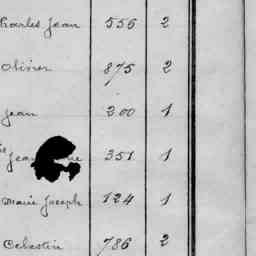 Charles Jean 556 2
Olivier 875 2
Jean 200 1
351 1
Marie Joseph 124 1
Celestin 786 2